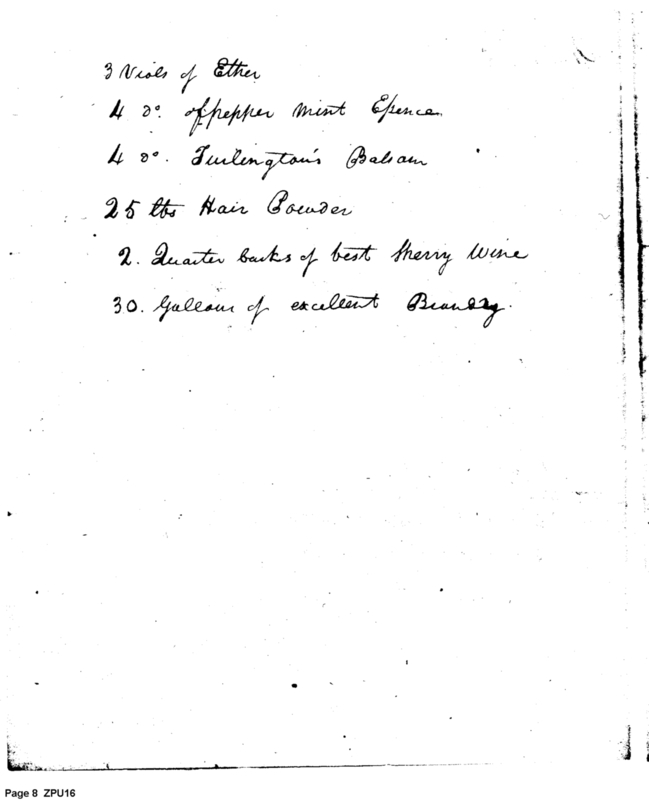 3 Viols of Ether
4 do. of pepper mint Essence
4 do. Turlington's Balsam
25 lbs Hair Powder
2. Quarter Casks of best Sherry Wine
30. Gallons of excellent Brandy.
Page 8 ZPU16